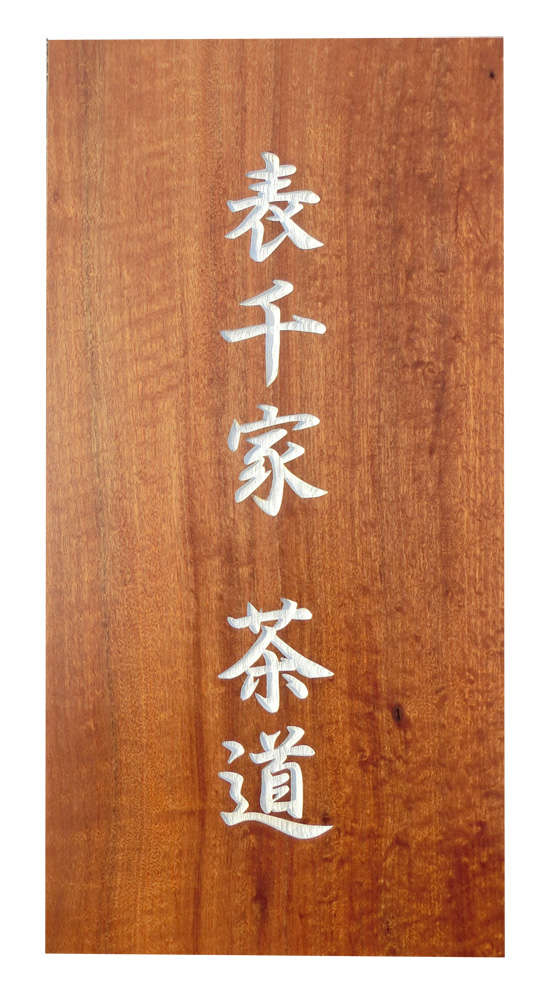 表千家 茶道